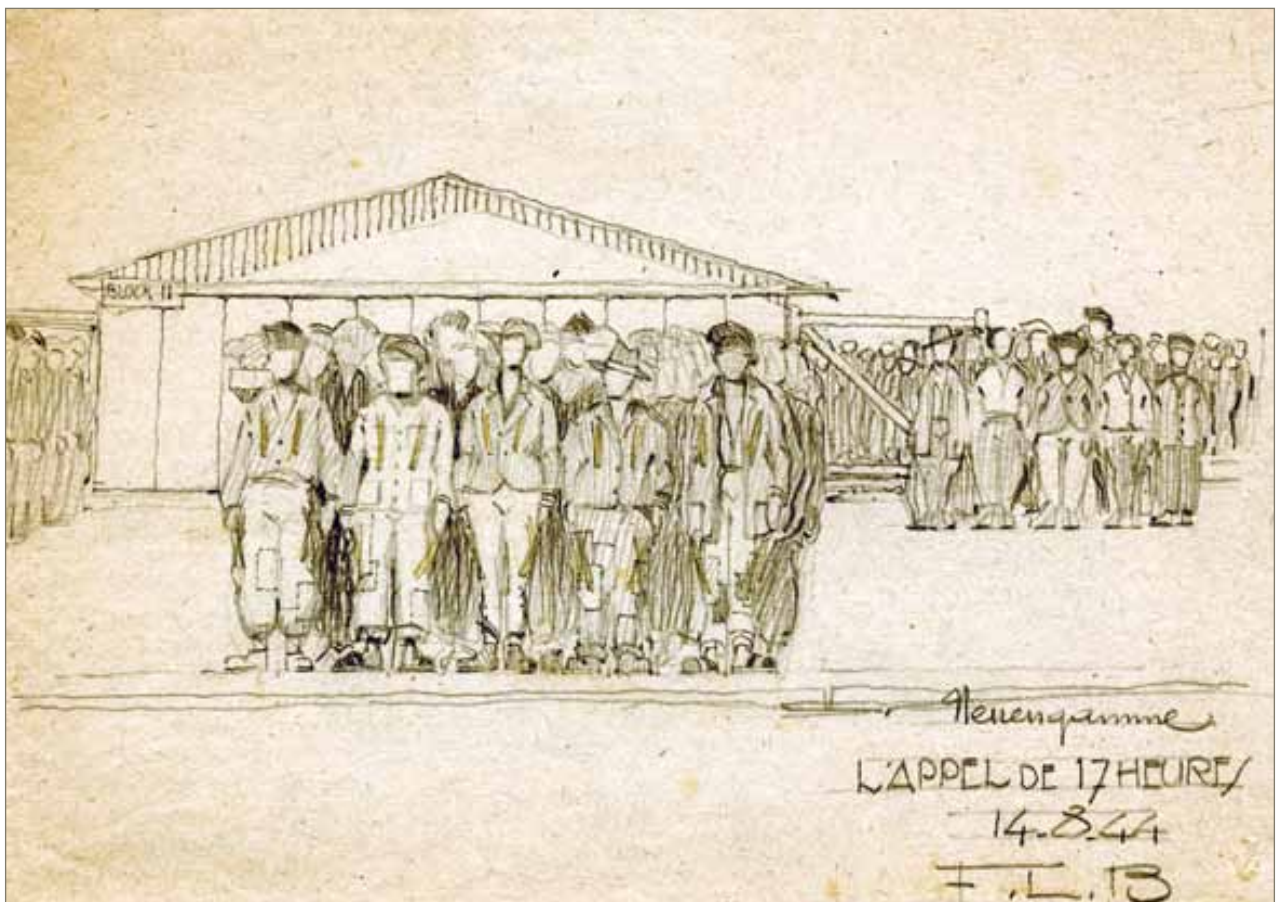 BLOCK 11
Neuengamme
L'APPEL DE 17 HEURES
14.8.44
F.L.B